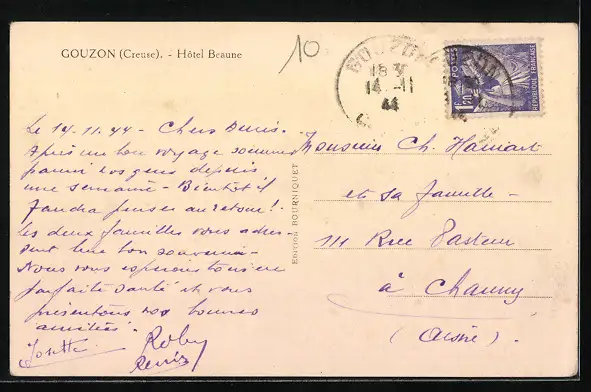 GOUZON (Creuse). - Hôtel Beaune
10
GOUZON
18 H
14 -11
44
POSTES
1F20
REPUBLIQUE FRANÇAISE
Le 14.11.44 - Chers Amis.
Après un bon voyage sommes
parmi nos gens depuis
une semaine - Bientôt il
faudra penser au retour!
Les deux familles vous adres-
sent leur bon souvenir -
Nous vous espérons tous en
parfaite santé et vous
présentons nos bonnes
amitiés.
Josette
Roby
EDITION BOURNIQUET
Monsieur Ch.
et sa famille -
111 Rue Pasteur
à Chauny
(Aisne).